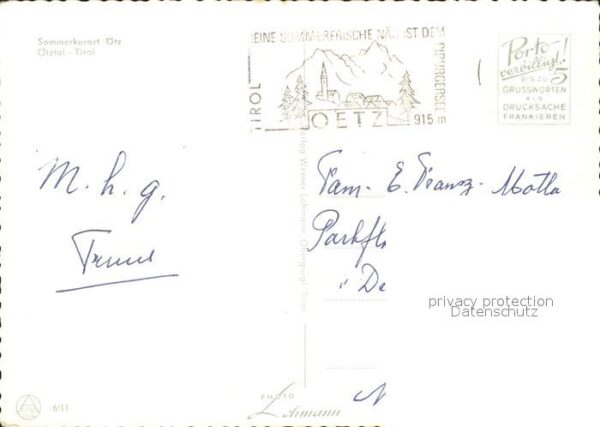 Sommerkurort Ötz
Ötztal - Tirol
EINE SOMMERFRISCHE NÄCHST DEM
PIBURGERSEE
TIROL
OETZ
915 m
Porto-
verbilligt!
BIS ZU 5
GRUSSWORTEN
ALS
DRUCKSACHE
FRANKIEREN
M. h. g.
Fam. E.
Verlag Werner Lohmann, Obergurgl, Tirol
privacy protection
Datenschutz
6/11
PHOTO
Lohmann